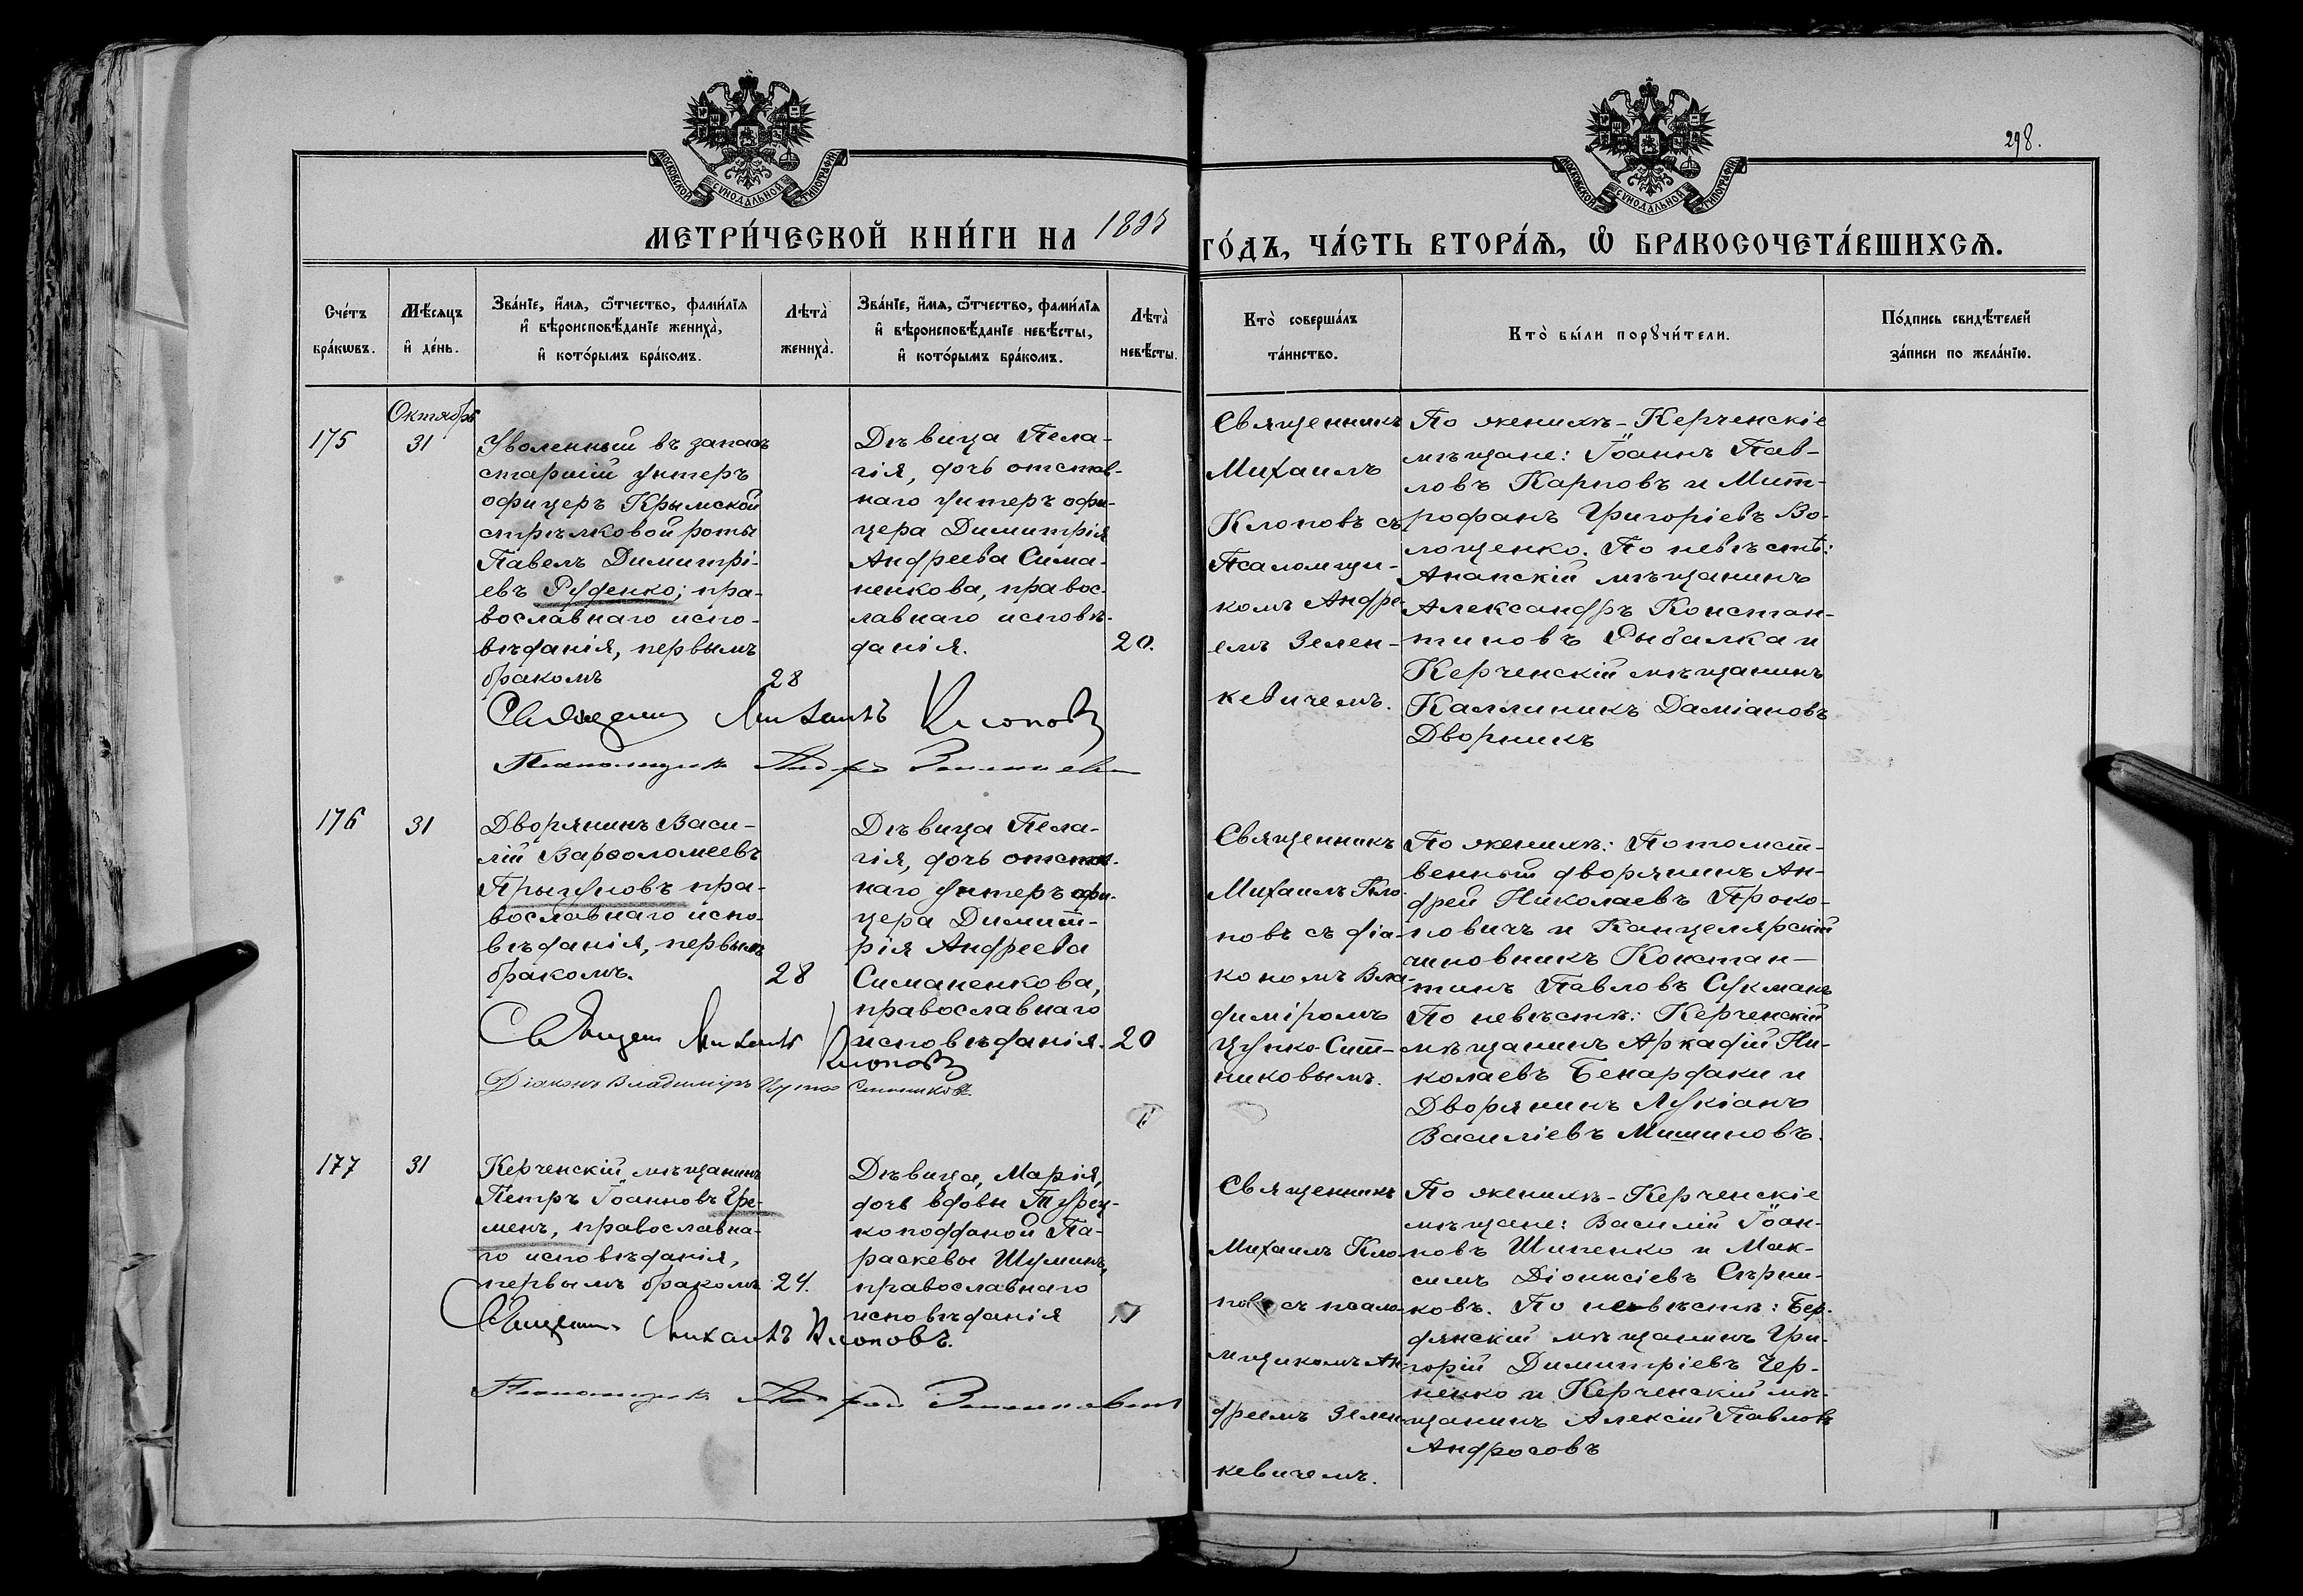 298.
МОСКОВСКОЙ СУНОДАЛЬНОЙ ТИПОГРАФІИ
МОСКОВСКОЙ СУНОДАЛЬНОЙ ТИПОГРАФІИ
МЕТРИ́ЧЕСКОЙ КНИ́ГИ НА
ГО́ДЪ, ЧА́СТЬ ВТОРА́Ѧ, Ѽ БРАКОСОЧЕТА́ВШИХСѦ.
Сче́тъ
бра́кѡвъ.
Мѣ́сѧцъ
и҆ де́нь.
Зва́нїе, и҆́мѧ, ѻ҆́тчество, фами́лїѧ
и҆ вѣроисповѣ́данїе жениха̀,
и҆ кото́рымъ бра́комъ.
Лѣта̀
жениха̀.
Зва́нїе, и҆́мѧ, ѻ҆́тчество, фами́лїѧ
и҆ вѣроисповѣ́данїе невѣ́сты,
и҆ кото́рымъ бра́комъ.
Лѣта̀
невѣ́сты.
Кто̀ соверша́лъ
та́инство.
Кто̀ бы́ли порꙋчи́тели.
По́дпись свидѣ́телей
за́писи по жела́нїю.
Октябрь
175
31
Уволенный въ запасъ
старшій унтеръ
офицеръ Крымской
стрѣлковой роты
Павелъ Димитрі-
евъ Руденко; пра-
вославнаго испо-
вѣданія, первымъ
бракомъ
28
Дѣвица Пела-
гія, дочь отстав-
наго унтеръ офи-
цера Димитрія
Андреева Сима-
ненкова, правос-
лавнаго исповѣ-
данія.
20.
Священникъ
Михаилъ
Клоповъ съ
Псаломщи-
комъ Андре-
емъ Зелен-
кевичемъ.
По женихѣ - Керченскіе
мѣщане: Іоаннъ Пав-
ловъ Карповъ и Мит-
рофанъ Григоріевъ Во-
лощенко. По невѣстѣ:
Анапскій мѣщанинъ
Александръ Констан-
тиновъ Рыбалка и
Керченскій мѣщанинъ
Каллиникъ Даміановъ
Дворникъ
Священникъ Михаилъ Клоповъ
Псаломщикъ Андрей Зеленкевичъ
176
31
Дворянинъ Васи-
лій Варѳоломеевъ
Прыгуновъ пра-
вославнаго испо-
вѣданія, первымъ
бракомъ.
28
Дѣвица Пела-
гія, дочь отстав-
наго унтеръ офи-
цера Димит-
рія Андреева
Симаненкова,
православнаго
исповѣданія.
20
Священникъ
Михаилъ Кло-
повъ съ діа-
кономъ Вла-
диміромъ
Цупко-Сит-
никовымъ.
По женихѣ: Потомст-
венный дворянинъ Ан-
дрей Николаевъ Проко-
повичъ и Канцелярскій
чиновникъ Констан-
тинъ Павловъ Сукманъ
По невѣстѣ: Керченскій
мѣщанинъ Аркадій Ни-
колаевъ Бенардаки и
Дворянинъ Лукіанъ
Василіевъ Мишиновъ.
Священ Михаилъ Клоповъ
Діаконъ Владиміръ Цупко Ситниковъ
177
31
Керченскій мѣщанинъ
Петръ Іоанновъ Гре-
менъ, православна-
го исповѣданія,
первымъ бракомъ
24.
Дѣвица, Марія,
дочь вдовы Турец-
коподданой Па-
раскевы Шуминъ,
православнаго
исповѣданія
Священникъ
Михаилъ Кло-
повъ съ псало-
мщикомъ Ан-
дреемъ Зелен-
кевичемъ.
По женихѣ - Керченскіе
мѣщане: Василій Іоан-
новъ Шипенко и Мак-
симъ Діонисіевъ Сѣрни-
ковъ. По невѣстѣ: Бер-
дянскій мѣщанинъ Гри-
горій Димитріевъ Чер-
ненко и Керченскій мѣ-
щанинъ Алексій Павловъ
Андросовъ
Священникъ Михаилъ Клоповъ.
Псаломщикъ Андрей Зеленкевичъ